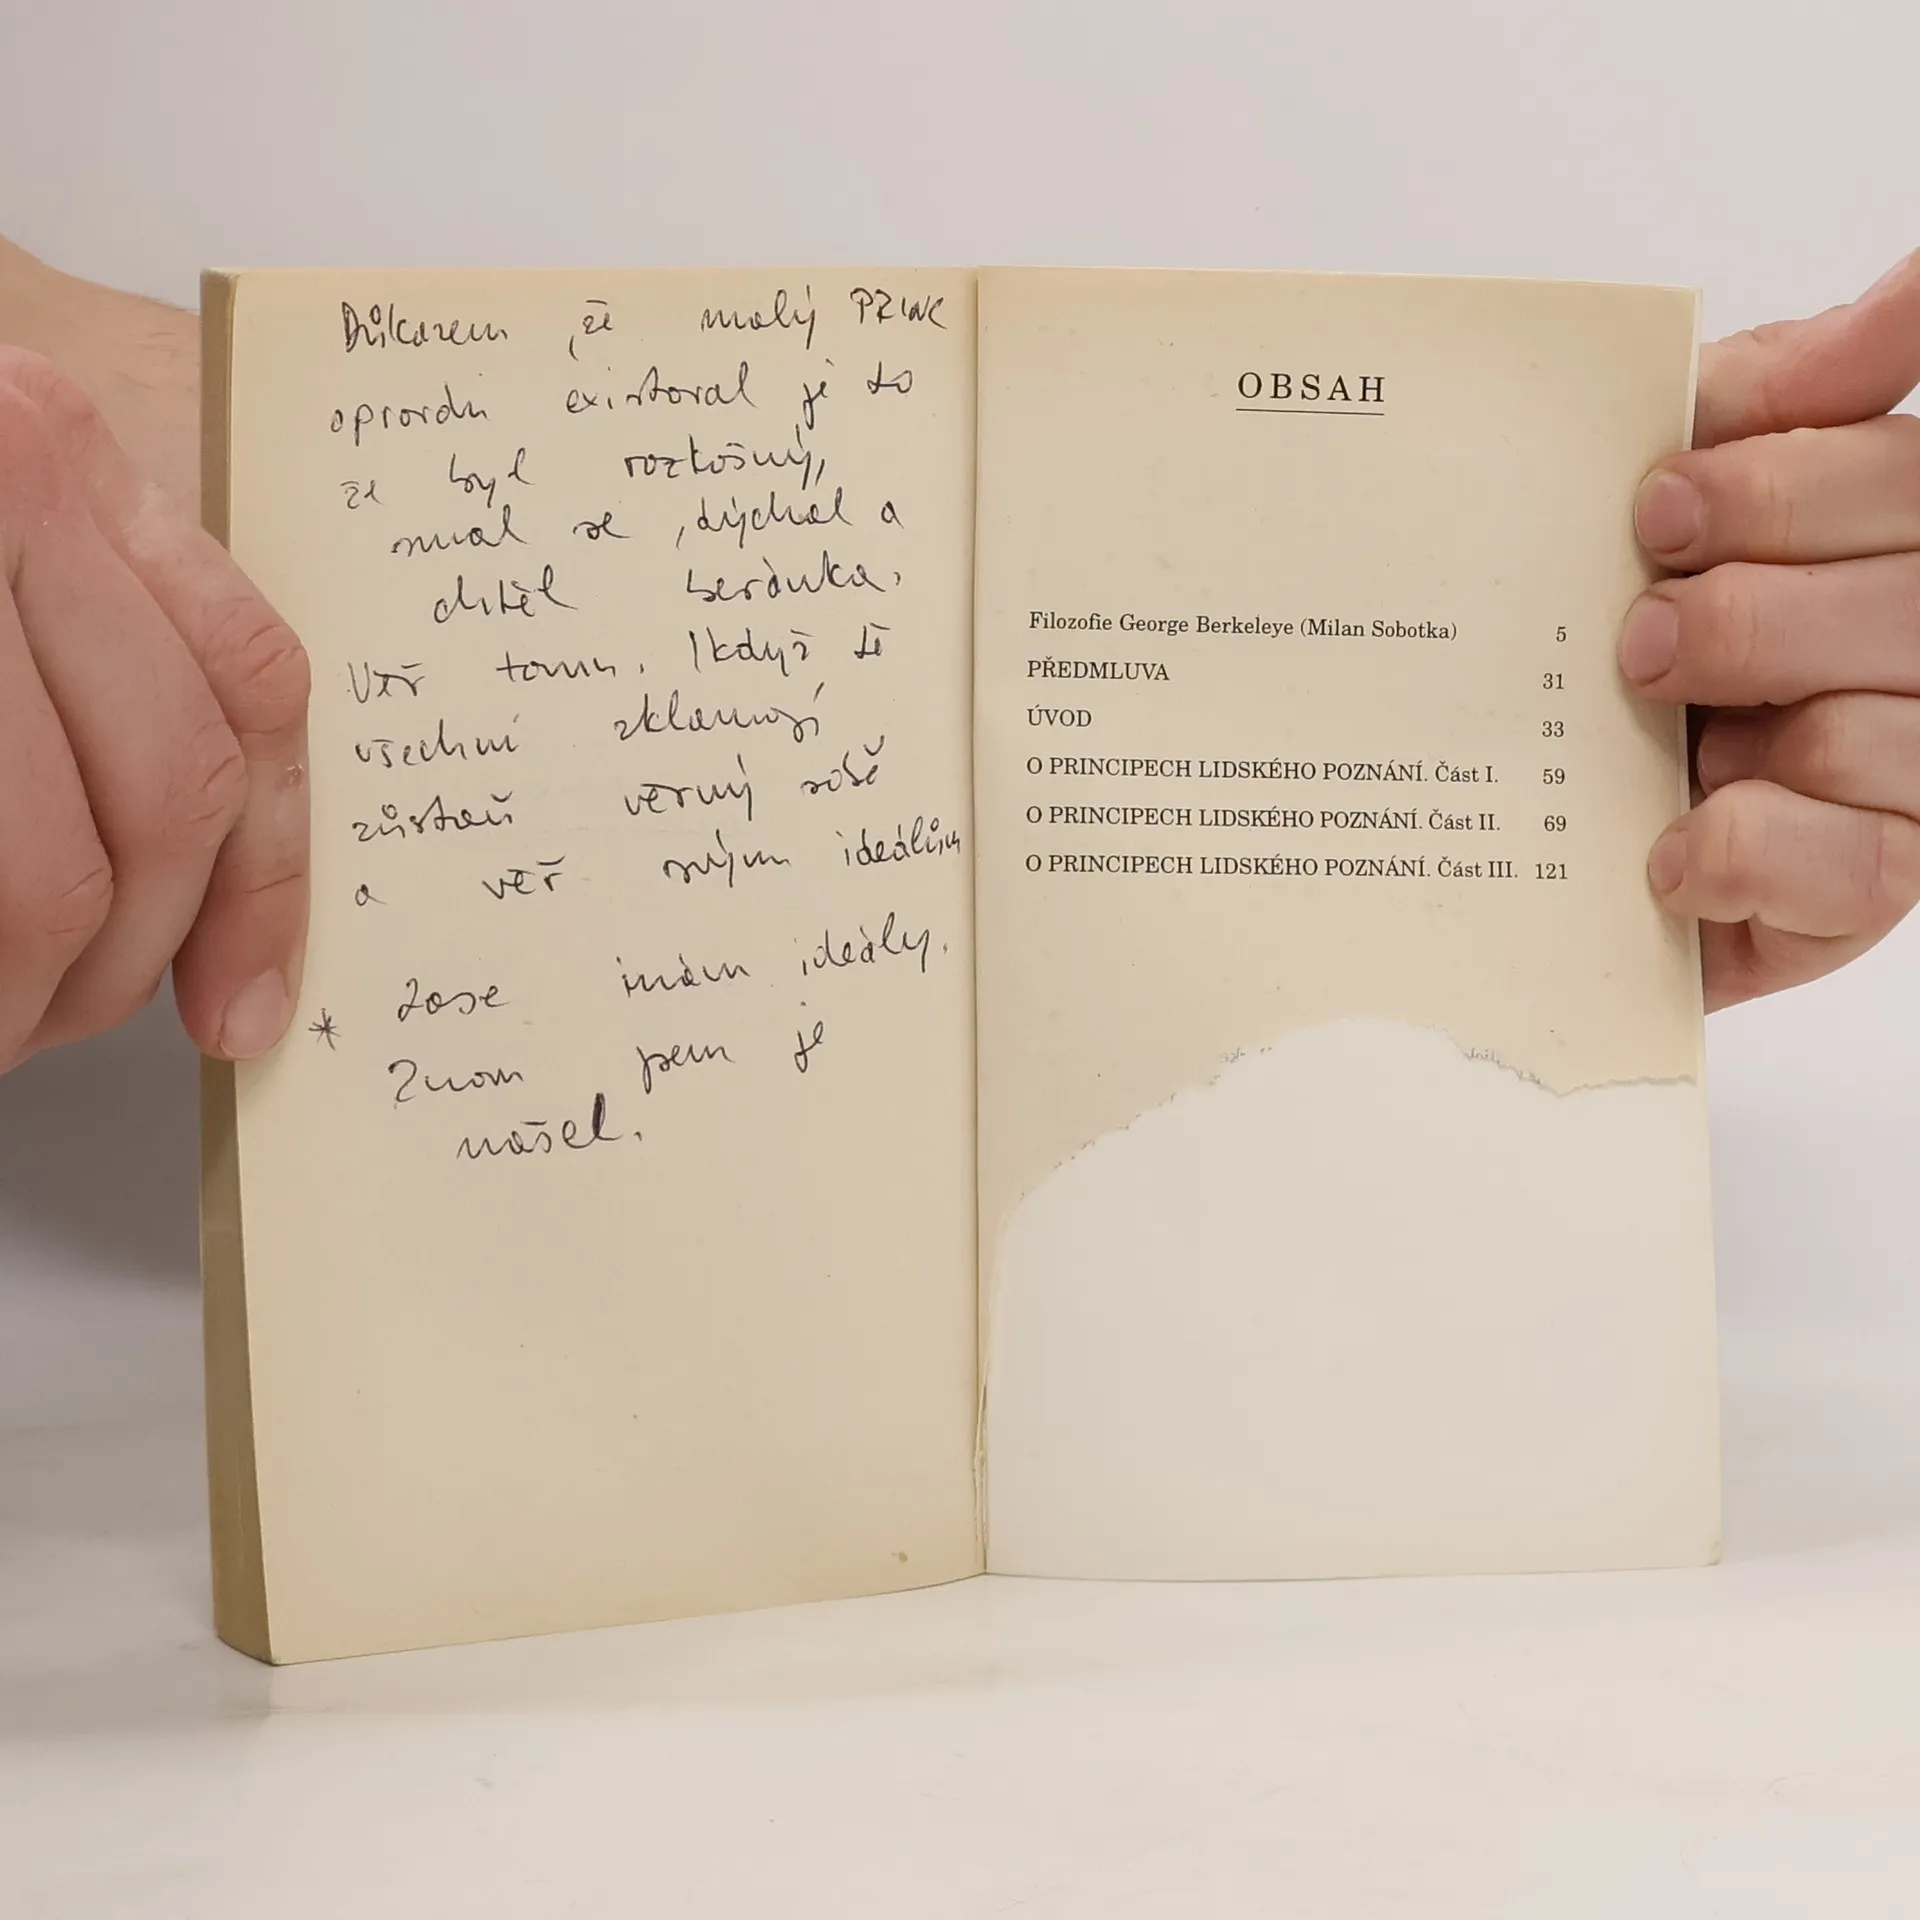 Důkazem, že malý PRINC
opravdu existoval je to
že byl roztošný,
smál se, dýchal a
chtěl beránka.
Věř tomu. I když tě
všichni zklamají
zůstaň věrný růži
a věř svým ideálům
Zase mám ideály.
* Znom jsem je
našel.
OBSAH
Filozofie George Berkeleye (Milan Sobotka) 5
PŘEDMLUVA 31
ÚVOD 33
O PRINCIPECH LIDSKÉHO POZNÁNÍ. Část I. 59
O PRINCIPECH LIDSKÉHO POZNÁNÍ. Část II. 69
O PRINCIPECH LIDSKÉHO POZNÁNÍ. Část III. 121